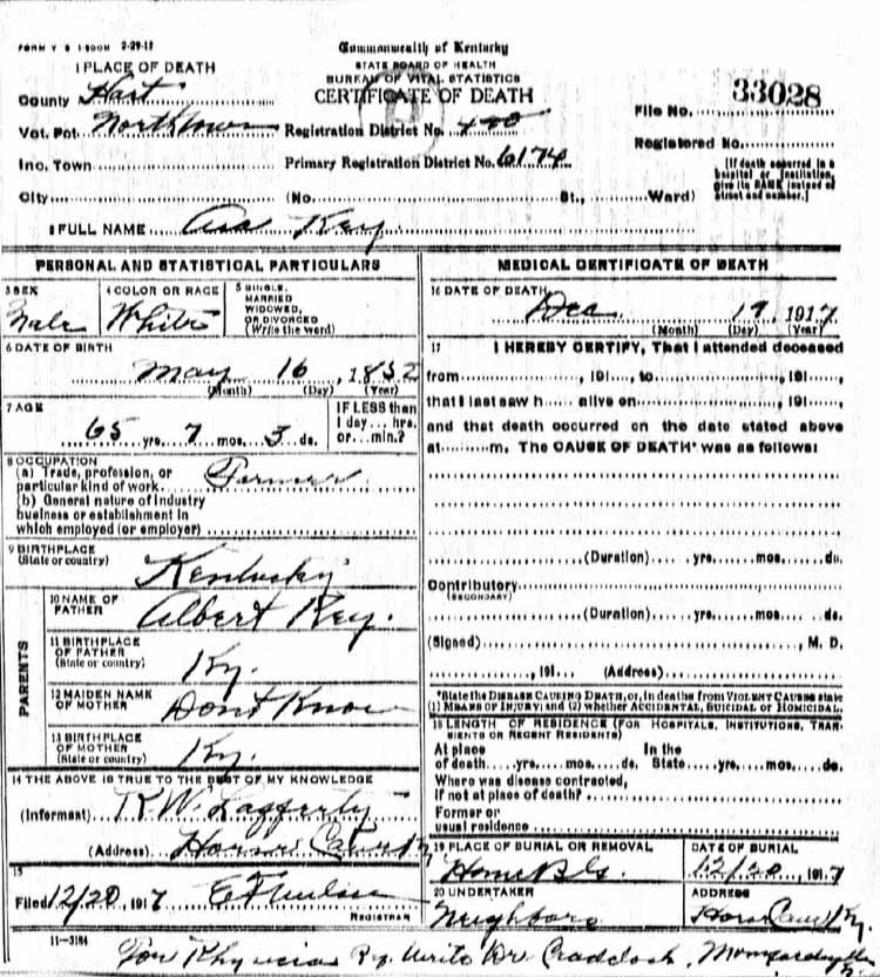 FORM V S 1-500M 2-29-12
Commonwealth of Kentucky
STATE BOARD OF HEALTH
BUREAU OF VITAL STATISTICS
CERTIFICATE OF DEATH
1 PLACE OF DEATH
County Hart
Vot. Pct. Northtown Registration District No. 490
Inc. Town Primary Registration District No. 6174
City (No. St., Ward)
File No. 33028
Registered No.
[If death occurred in a
hospital or institution,
give its NAME instead of
street and number.]
2 FULL NAME Asa Key
PERSONAL AND STATISTICAL PARTICULARS
3 SEX
Male
4 COLOR OR RACE
White
5 SINGLE,
MARRIED
WIDOWED,
OR DIVORCED
(Write the word)
6 DATE OF BIRTH
May 16, 1852
(Month) (Day) (Year)
7 AGE
65 yrs. 7 mos. 3 ds.
IF LESS than
1 day... hrs.
or... min.?
8 OCCUPATION
(a) Trade, profession, or
particular kind of work Farmer
(b) General nature of Industry
business or establishment in
which employed (or employer)
9 BIRTHPLACE
(State or country)
Kentucky
PARENTS
10 NAME OF
FATHER
Albert Key.
11 BIRTHPLACE
OF FATHER
(State or country)
Ky.
12 MAIDEN NAME
OF MOTHER
Dont Know
13 BIRTHPLACE
OF MOTHER
(State or country)
Ky.
14 THE ABOVE IS TRUE TO THE BEST OF MY KNOWLEDGE
(Informant) R.W. Lafferty
(Address) Horse Cave Ky
15
Filed 12/20, 1917
REGISTRAR
11-3184
MEDICAL CERTIFICATE OF DEATH
16 DATE OF DEATH
Dec 19 1917
(Month) (Day) (Year)
17 I HEREBY CERTIFY, That I attended deceased
from , 191 , to , 191 ,
that I last saw h alive on , 191 ,
and that death occurred on the date stated above
at m. The CAUSE OF DEATH* was as follows:
(Duration) yrs. mos. ds.
Contributory
(SECONDARY)
(Duration) yrs. mos. ds.
(Signed) , M. D.
, 191 (Address)
*State the DISEASE CAUSING DEATH, or, in deaths from VIOLENT CAUSES state
(1) MEANS OF INJURY; and (2) whether ACCIDENTAL, SUICIDAL or HOMICIDAL.
18 LENGTH OF RESIDENCE (FOR HOSPITALS, INSTITUTIONS, TRAN-
SIENTS OR RECENT RESIDENTS)
At place In the
of death yrs. mos. ds. State yrs. mos. ds.
Where was disease contracted,
if not at place of death?
Former or
usual residence
19 PLACE OF BURIAL OR REMOVAL
Home
DATE OF BURIAL
12/20, 1917
20 UNDERTAKER
Neighbors
ADDRESS
Horse Cave Ky.
For Write Dr. Craddock,